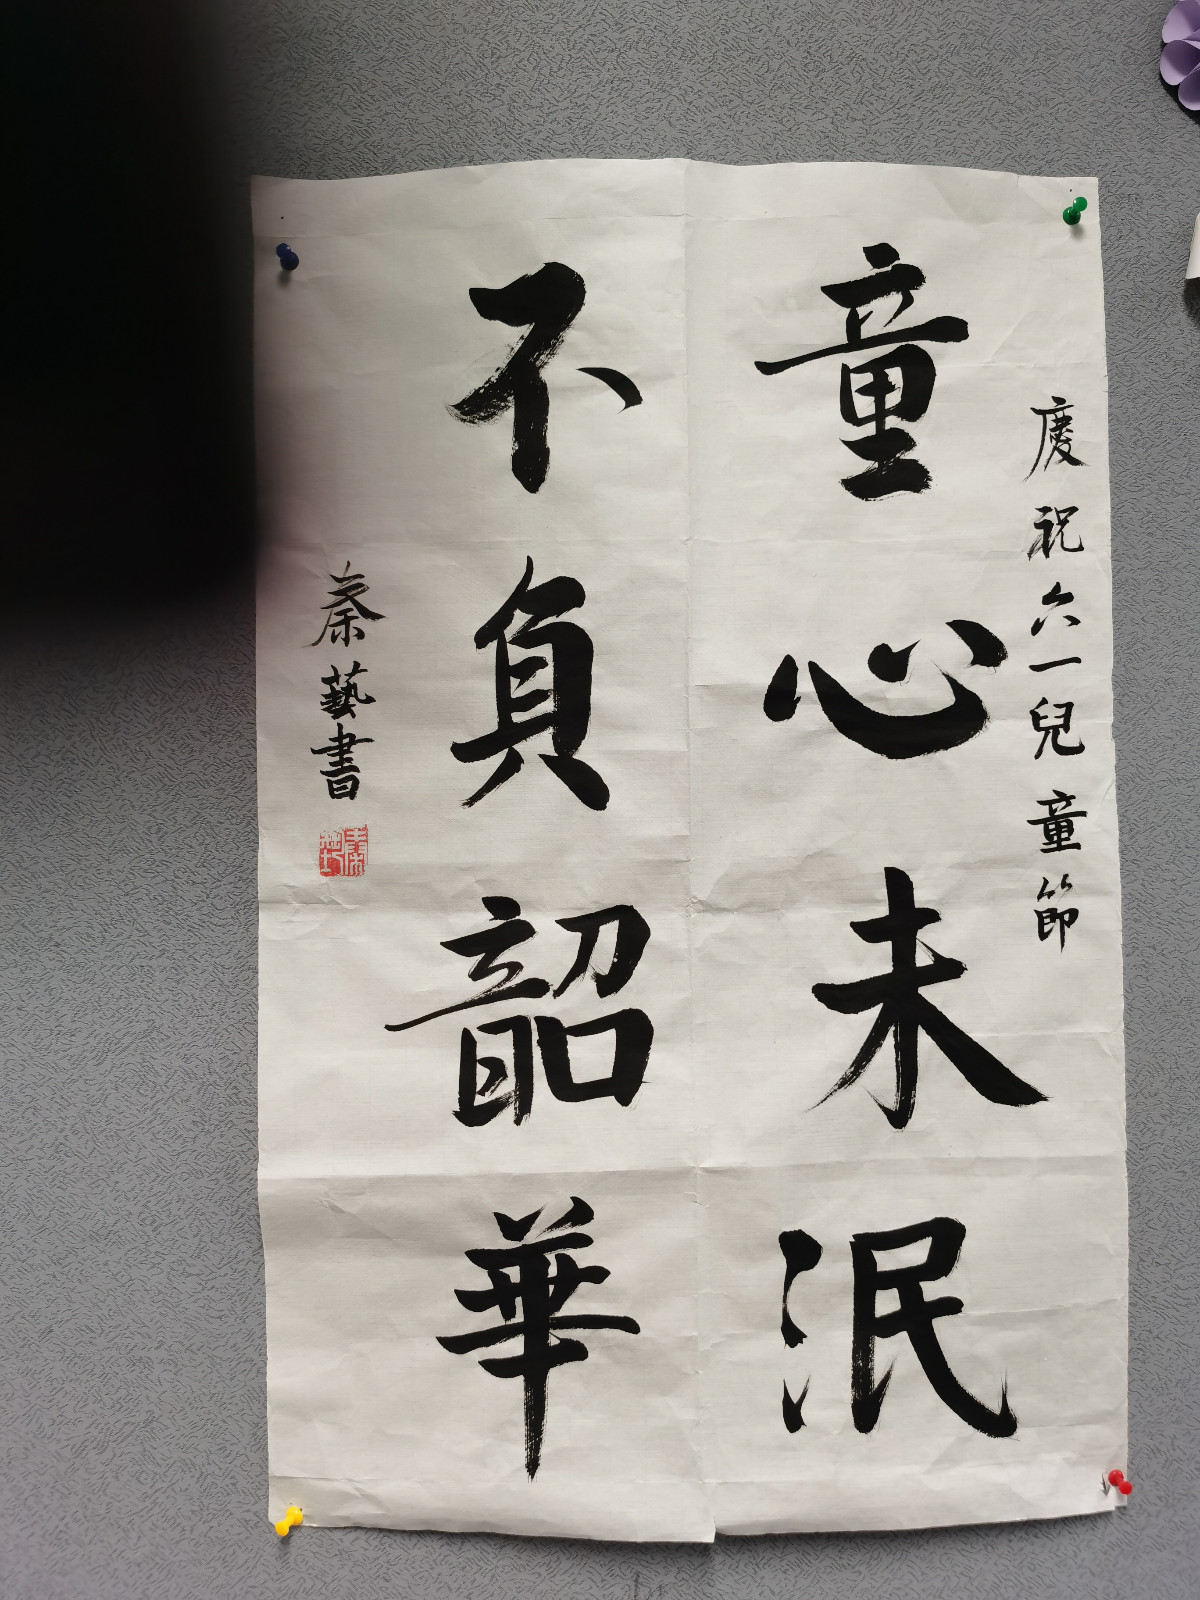 慶祝六一兒童節
童心未泯
不負韶華
秦藝書